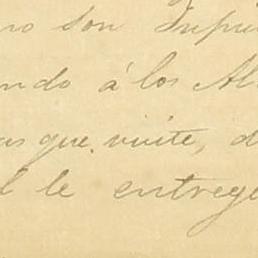 no son Impu
ndo á los Al
as que visite, d
l le entregu